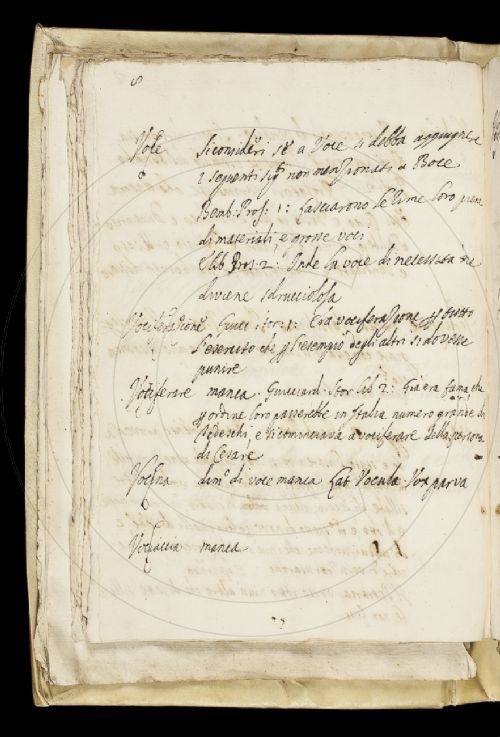 Voce Si consideri se a Voce si debba aggiugnere
i seguenti sig.ti non menzionati a Boce
Bemb: Pros: 1: Lasciarono le Rime loro piene
di materiali, e grosse voci
E lib Pros: 2: Onde la voce di necessità ne
diviene sdrucciolosa
Vociferazione Guicc: stor: 1: Era vociferazione p tutto
l'esercito che p l'esempio degli altri si dovesse
punire
Vociferare manca. Guicciard. Stor lib 2: Già era fama, che
p ordine loro passerebbe in Italia numero grande di
Tedeschi, e si cominciava a vociferare della persona
di Cesare
Vocina dim.o di voce manca Lat Vocula Vox parva
Vociaccia manca